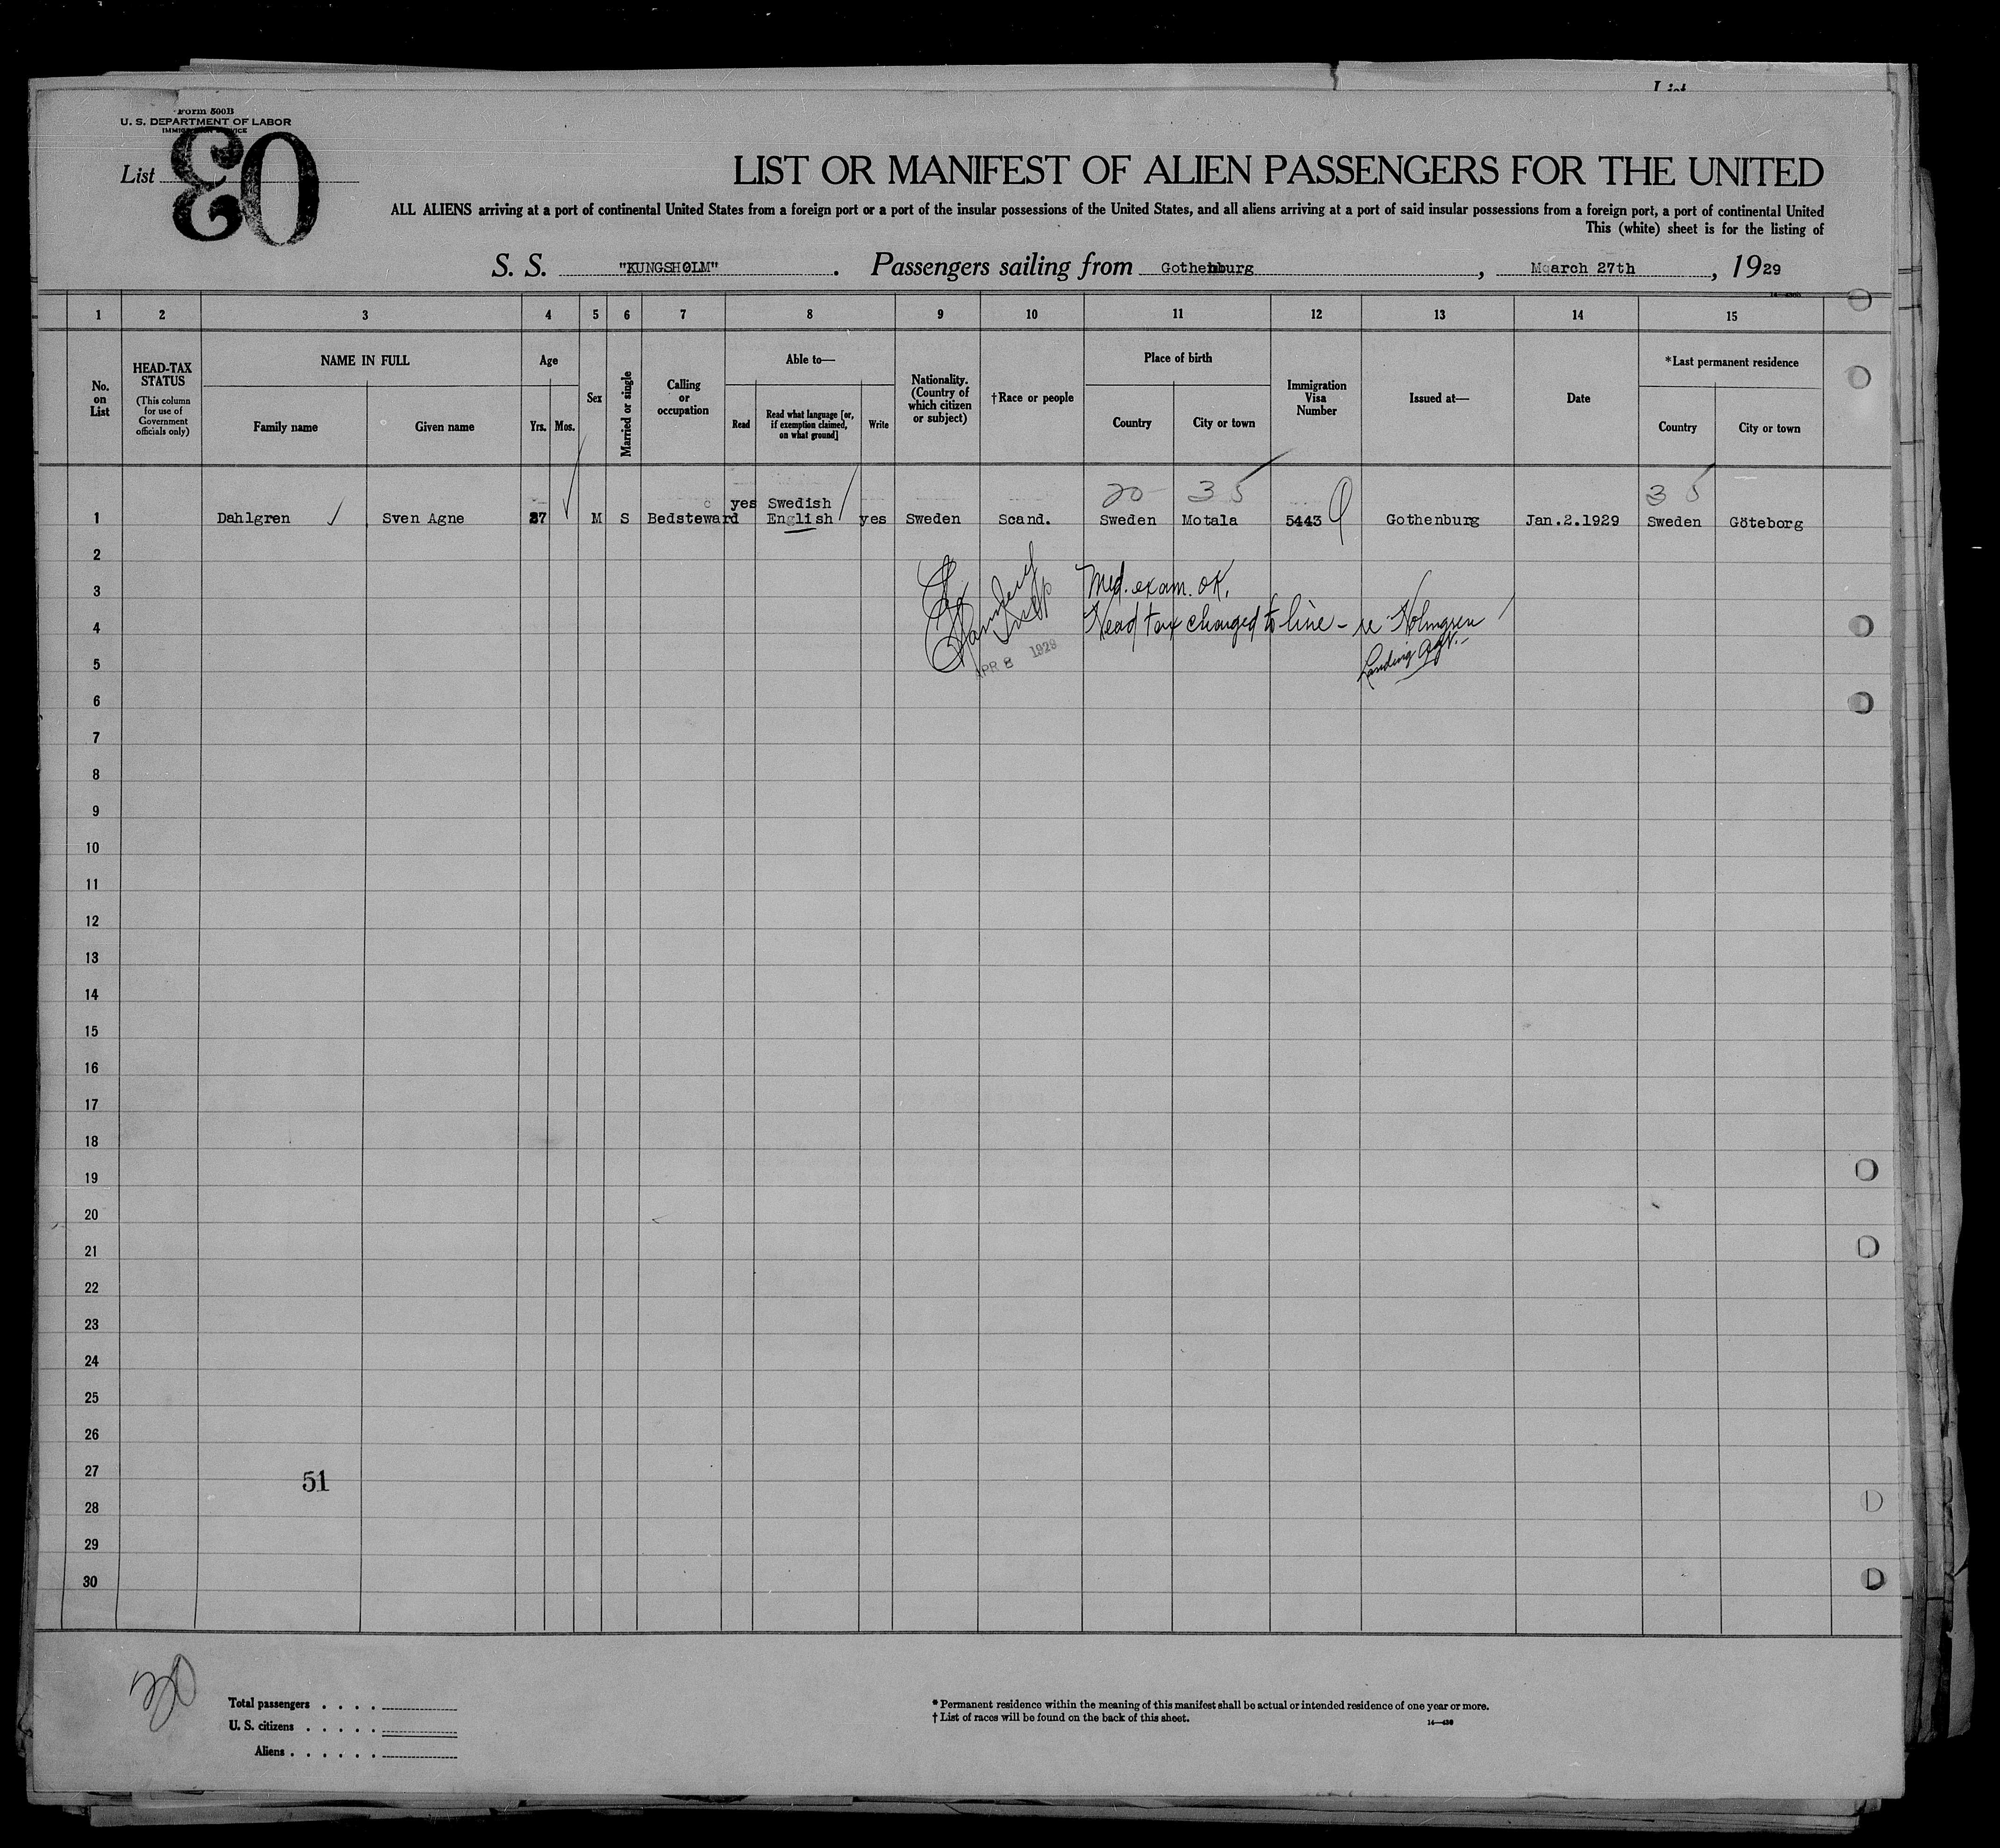 List
Form 500B
U. S. DEPARTMENT OF LABOR
IMMIGRATION SERVICE
List 30
LIST OR MANIFEST OF ALIEN PASSENGERS FOR THE UNITED
ALL ALIENS arriving at a port of continental United States from a foreign port or a port of the insular possessions of the United States, and all aliens arriving at a port of said insular possessions from a foreign port, a port of continental United
This (white) sheet is for the listing of
S. S. "KUNGSHOLM". Passengers sailing from Gothenburg, March 27th, 1929
1 2 3 4 5 6 7 8 9 10 11 12 13 14 15
No. on List
HEAD-TAX STATUS
(This column for use of Government officials only)
NAME IN FULL
Family name
Given name
Age
Yrs.
Mos.
Sex
Married or single
Calling or occupation
Able to—
Read
Read what language [or, if exemption claimed, on what ground]
Write
Nationality. (Country of which citizen or subject)
†Race or people
Place of birth
Country
City or town
Immigration Visa Number
Issued at—
Date
*Last permanent residence
Country
City or town
20 35 35
yes Swedish
1 Dahlgren Sven Agne 37 M S Bedsteward English yes Sweden Scand. Sweden Motala 5443 Gothenburg Jan.2.1929 Sweden Göteborg
2
3 Med. exam. OK.
4 Head tax charged to line - re Holmgren
5 Landing Agt.
APR 8 1929
6
7
8
9
10
11
12
13
14
15
16
17
18
19
20
21
22
23
24
25
26
27 51
28
29
30
30
Total passengers . . . .
U. S. citizens . . . . .
Aliens . . . . . .
* Permanent residence within the meaning of this manifest shall be actual or intended residence of one year or more.
† List of races will be found on the back of this sheet.